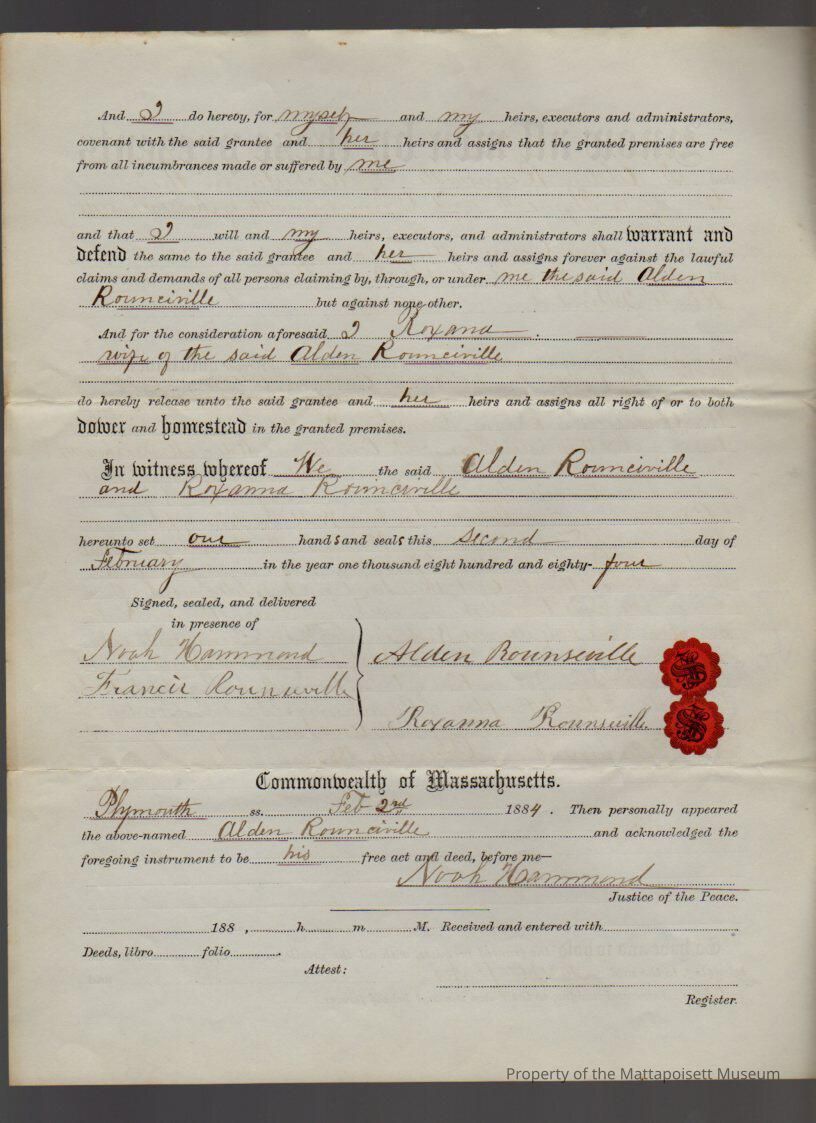 And I do hereby, for myself and my heirs, executors and administrators,
covenant with the said grantee and her heirs and assigns that the granted premises are free
from all incumbrances made or suffered by me
and that I will and my heirs, executors, and administrators shall warrant and
defend the same to the said grantee and her heirs and assigns forever against the lawful
claims and demands of all persons claiming by, through, or under me the said Alden
Rounciville but against none other.
And for the consideration aforesaid I Roxana
wife of the said Alden Rounciville
do hereby release unto the said grantee and her heirs and assigns all right of or to both
dower and homestead in the granted premises.
In witness whereof We the said Alden Rounciville
and Roxanna Rounciville
hereunto set our hands and seals this second day of
February in the year one thousand eight hundred and eighty-four
Signed, sealed, and delivered
in presence of
Noah Hammond
Alden Rounseville
Francis Rounseville
Roxanna Rounseville
Commonwealth of Massachusetts.
Plymouth ss. Feb 2nd 1884. Then personally appeared
the above-named Alden Rounciville and acknowledged the
foregoing instrument to be his free act and deed, before me—
Noah Hammond
Justice of the Peace.
188 , h. m. M. Received and entered with
Deeds, libro folio
Attest:
Register.
Property of the Mattapoisett Museum